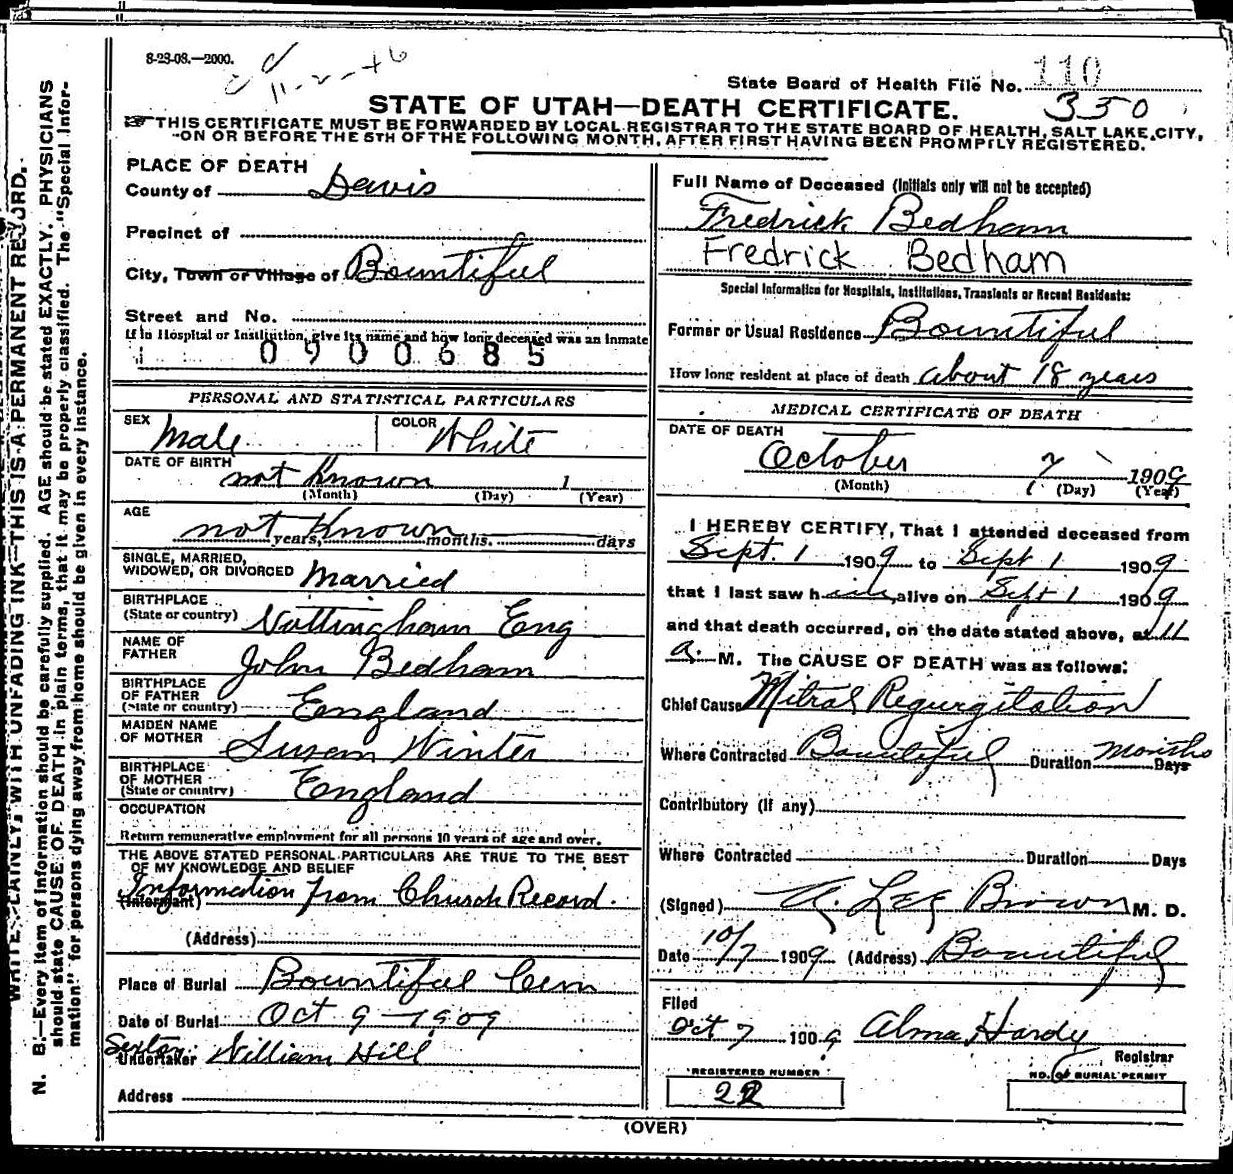 8-23-08.—2000.
11-2-46
State Board of Health File No. 110
350
STATE OF UTAH—DEATH CERTIFICATE.
THIS CERTIFICATE MUST BE FORWARDED BY LOCAL REGISTRAR TO THE STATE BOARD OF HEALTH, SALT LAKE CITY,
ON OR BEFORE THE 5TH OF THE FOLLOWING MONTH, AFTER FIRST HAVING BEEN PROMPTLY REGISTERED.
PLACE OF DEATH
County of Davis
Precinct of
City, Town or Village of Bountiful
Street and No.
If in Hospital or Institution, give its name and how long deceased was an Inmate
0900685
PERSONAL AND STATISTICAL PARTICULARS
SEX Male COLOR White
DATE OF BIRTH not known 1
(Month) (Day) (Year)
AGE not known
years, months. days
SINGLE, MARRIED,
WIDOWED, OR DIVORCED Married
BIRTHPLACE
(State or country) Nottingham Eng
NAME OF
FATHER John Bedham
BIRTHPLACE
OF FATHER
(State or country) England
MAIDEN NAME
OF MOTHER Susan Winter
BIRTHPLACE
OF MOTHER
(State or country) England
OCCUPATION
Return remunerative employment for all persons 10 years of age and over.
THE ABOVE STATED PERSONAL PARTICULARS ARE TRUE TO THE BEST
OF MY KNOWLEDGE AND BELIEF
Information from Church Record.
(Informant)
(Address)
Place of Burial Bountiful Cem
Date of Burial Oct 9 - 1909
Sexton
Undertaker William Hill
Address
Full Name of Deceased (Initials only will not be accepted)
Fredrick Bedham
Fredrick Bedham
Special Information for Hospitals, Institutions, Transients or Recent Residents:
Former or Usual Residence Bountiful
How long resident at place of death about 18 years
MEDICAL CERTIFICATE OF DEATH
DATE OF DEATH
October 7 1909
(Month) (Day) (Year)
I HEREBY CERTIFY, That I attended deceased from
Sept. 1 1909 to Sept 1 1909
that I last saw him alive on Sept 1 1909
and that death occurred, on the date stated above, at 11
a. M. The CAUSE OF DEATH was as follows:
Chief Cause Mitral Regurgitation
Where Contracted Bountiful Duration Months Days
Contributory (If any)
Where Contracted Duration Days
(Signed) A. Lee Brown M. D.
Date 10/7 1909 (Address) Bountiful
Filed
Oct 7 1909 Alma Hardy
Registrar
REGISTERED NUMBER
22
NO. OF BURIAL PERMIT
(OVER)
WRITE PLAINLY, WITH UNFADING INK—THIS IS A PERMANENT RECORD.
N. B.—Every item of information should be carefully supplied. AGE should be stated EXACTLY. PHYSICIANS
should state CAUSE OF DEATH in plain terms, that it may be properly classified. The "Special Infor-
mation" for persons dying away from home should be given in every instance.